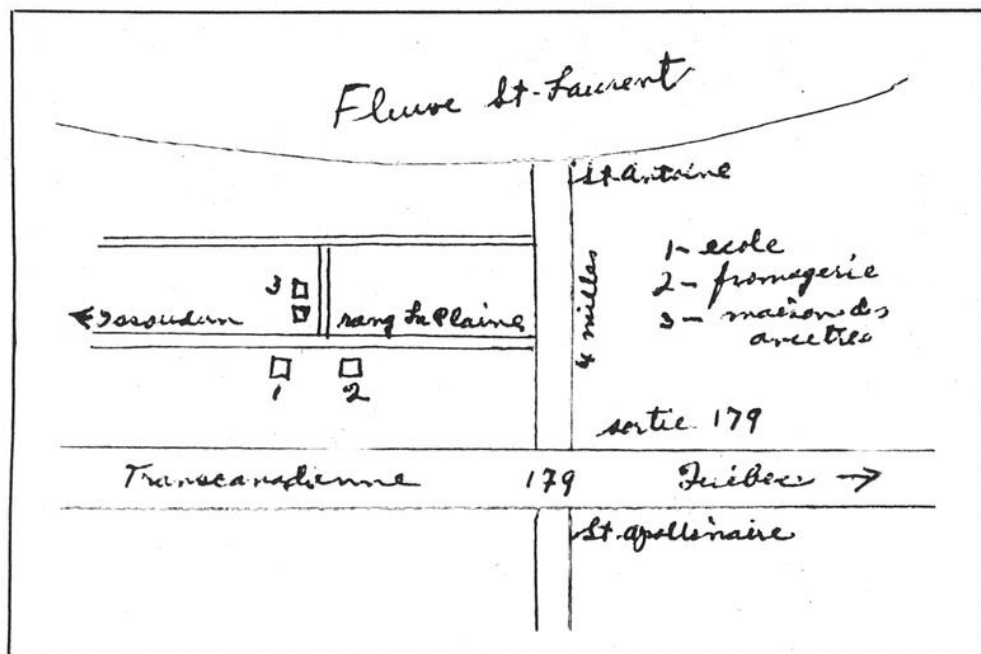 Fleuve St-Laurent
St-Antoine
1- ecole
2- fromagerie
3- maison des
ancêtres
3
Issoudun
rang La Plaine
4 milles
1
2
sortie 179
Transcanadienne
179
Québec →
St-Apollinaire